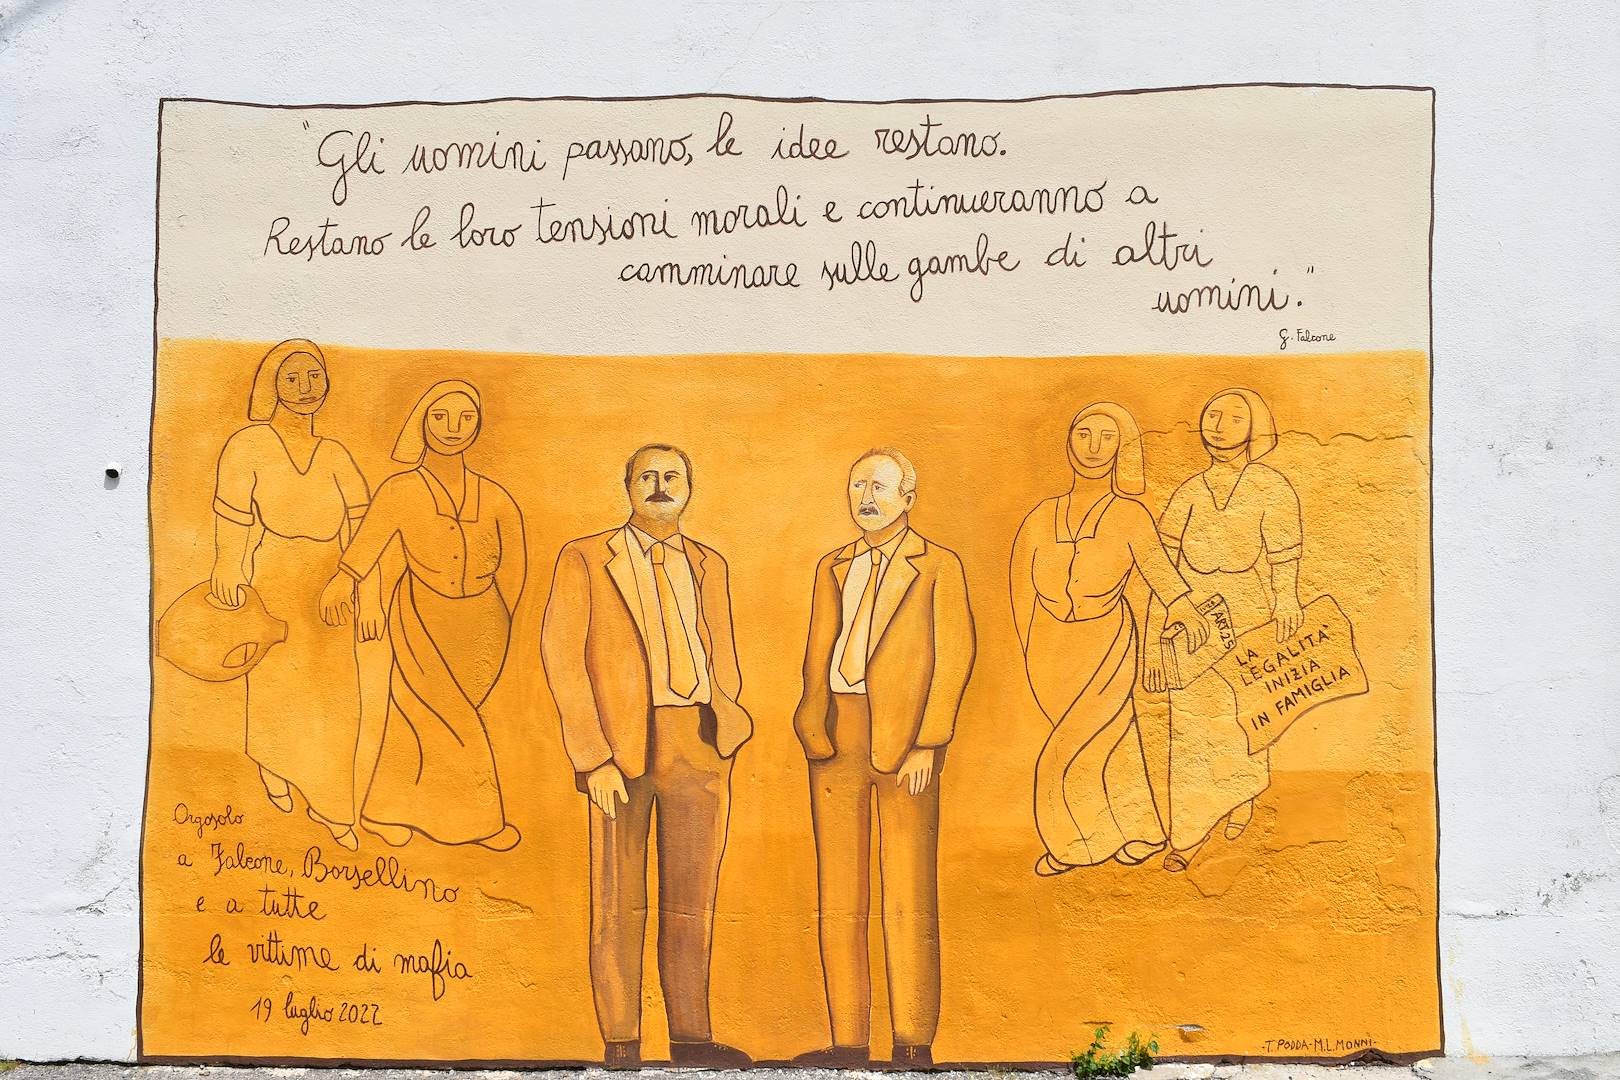 "Gli uomini passano, le idee restano.
Restano le loro tensioni morali e continueranno a
camminare sulle gambe di altri
uomini."
G. Falcone
ART. 25
LA
LEGALITA'
INIZIA
IN FAMIGLIA
Orgosolo
a Falcone, Borsellino
e a tutte
le vittime di mafia
19 luglio 2022
-T. PODDA-M.L. MONNI-